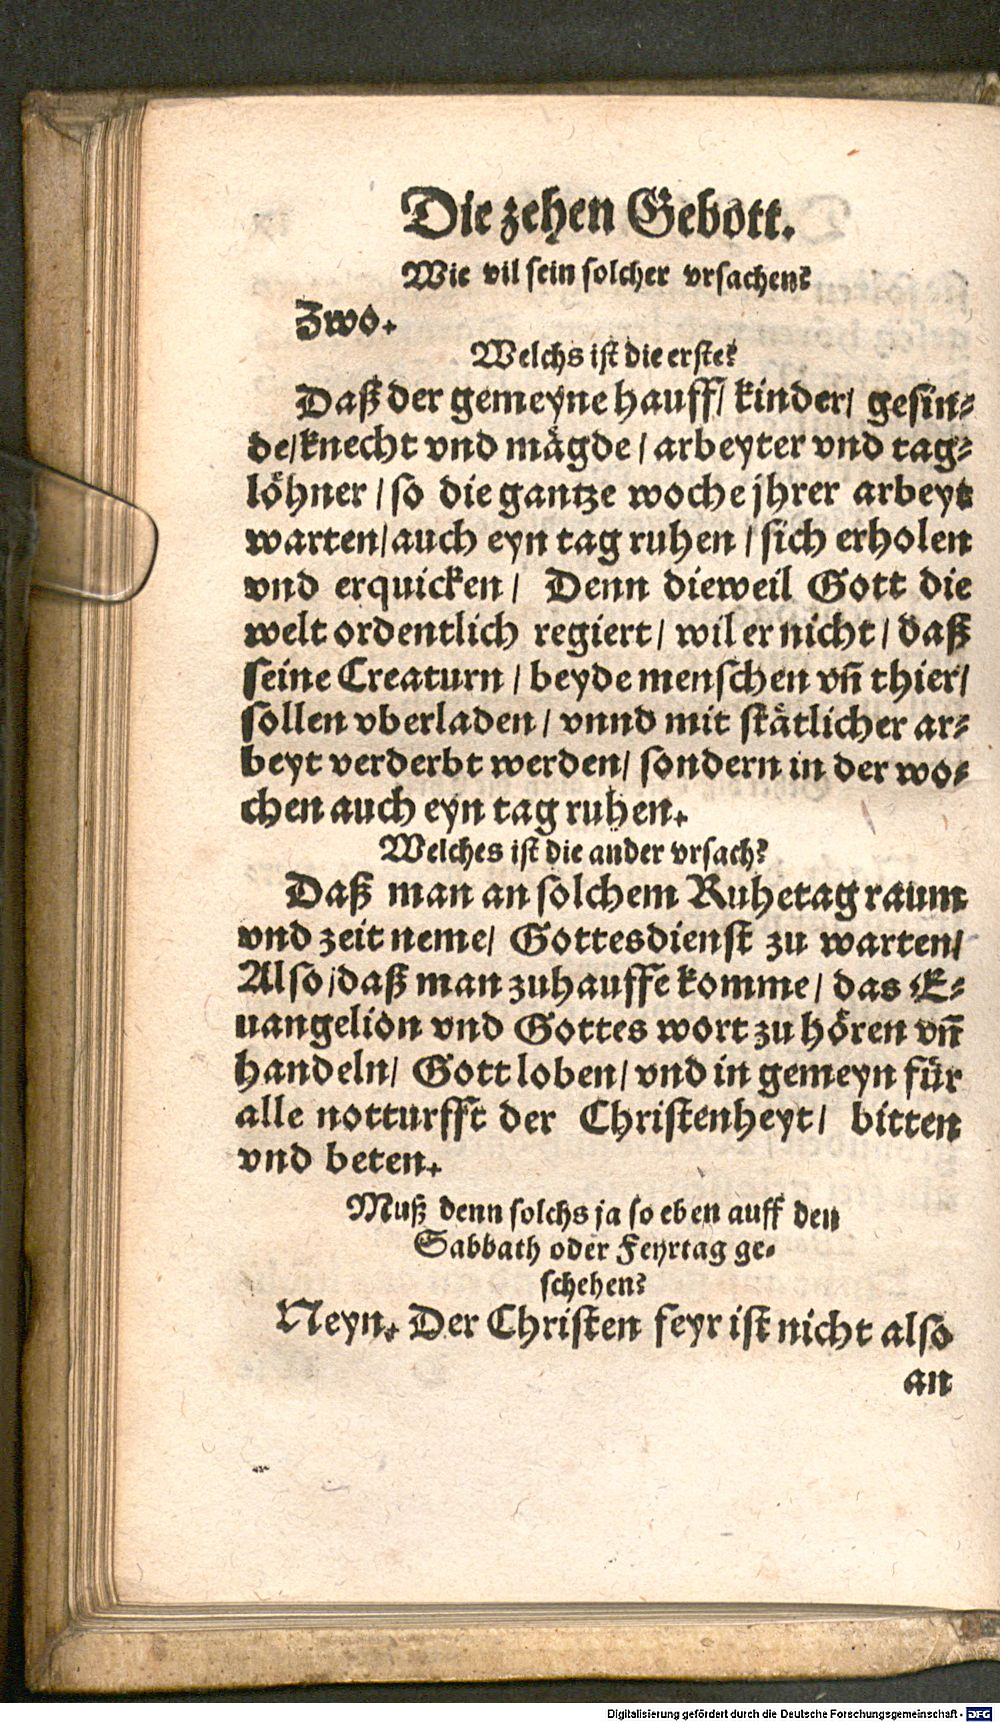 Die zehen Gebott.
Wie vil sein solcher vrsachen?
Zwo.
Welchs ist die erste?
Daß der gemeyne hauff/ kinder/ gesin⸗
de/ knecht vnd mägde/ arbeyter vnd tag⸗
löhner/ so die gantze woche jhrer arbeyt
warten/ auch eyn tag ruhen/ sich erholen
vnd erquicken/ Denn dieweil Gott die
welt ordentlich regiert/ wil er nicht/ daß
seine Creaturn/ beyde menschen vn̄ thier/
sollen vberladen/ vnnd mit stätlicher ar⸗
beyt verderbt werden/ sondern in der wo⸗
chen auch eyn tag ruhen.
Welches ist die ander vrsach?
Daß man an solchem Ruhetag raum
vnd zeit neme/ Gottesdienst zu warten/
Also/ daß man zuhauffe komme/ das E⸗
uangelion vnd Gottes wort zu hören vn̄
handeln/ Gott loben/ vnd in gemeyn für
alle notturfft der Christenheyt/ bitten
vnd beten.
Muß denn solchs ja so eben auff den
Sabbath oder Feyrtag ge⸗
schehen?
Neyn. Der Christen feyr ist nicht also
an
Digitalisierung gefördert durch die Deutsche Forschungsgemeinschaft - DFG